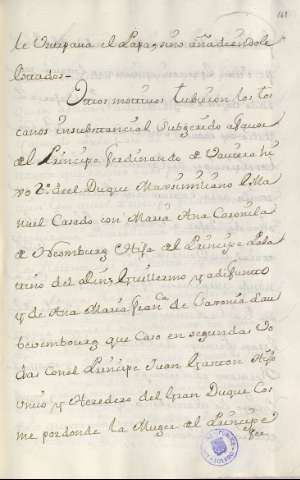 161
le Ocupava el Papa, sino añadiendole
Criados.
Otros motivos tubieron los tos
canos insubstancial Subgerido afavor
del Principe Ferdinando de Baviera hi
xo 2.º del Duque Maximiliano Ma
nuel Casado con Maria Ana Carolina
de Neomburg Hija del Principe Pala
tino del Rin Guillermo ya difunto
y de Ana Maria Fran.ca de Saxonia Lau
bevembourg que caso en segundas Vo
das con el Principe Juan Gaston Hijo
unico y Heredero del Gran Duque Cos
me por donde la Muger del Principe